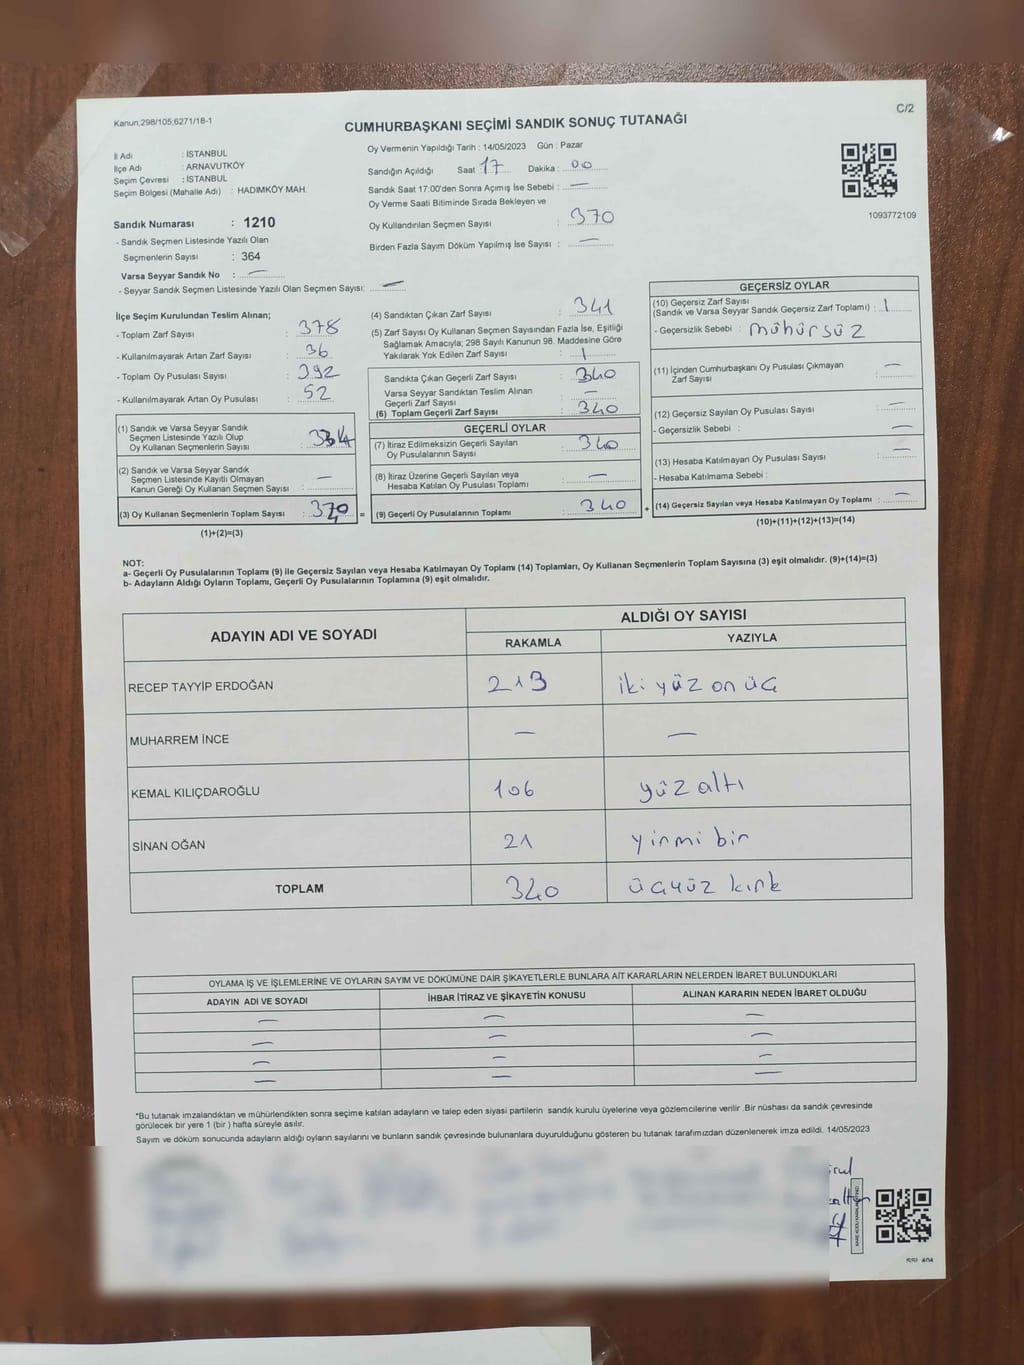 C/2
Kanun;298/105;6271/18-1
CUMHURBAŞKANI SEÇİMİ SANDIK SONUÇ TUTANAĞI
İl Adı : İSTANBUL
İlçe Adı : ARNAVUTKÖY
Seçim Çevresi : İSTANBUL
Seçim Bölgesi (Mahalle Adı) : HADIMKÖY MAH.
Sandık Numarası : 1210
- Sandık Seçmen Listesinde Yazılı Olan
Seçmenlerin Sayısı : 364
Varsa Seyyar Sandık No : —
- Seyyar Sandık Seçmen Listesinde Yazılı Olan Seçmen Sayısı: —
Oy Vermenin Yapıldığı Tarih : 14/05/2023 Gün : Pazar
Sandığın Açıldığı Saat 17 Dakika : 00
Sandık Saat 17:00'den Sonra Açımış İse Sebebi : —
Oy Verme Saati Bitiminde Sırada Bekleyen ve
Oy Kullandırılan Seçmen Sayısı : 370
Birden Fazla Sayım Döküm Yapılmış İse Sayısı : —
1093772109
İlçe Seçim Kurulundan Teslim Alınan;
- Toplam Zarf Sayısı : 378
- Kullanılmayarak Artan Zarf Sayısı : 36
- Toplam Oy Pusulası Sayısı : 392
- Kullanılmayarak Artan Oy Pusulası : 52
(1) Sandık ve Varsa Seyyar Sandık
Seçmen Listesinde Yazılı Olup
Oy Kullanan Seçmenlerin Sayısı :
(2) Sandık ve Varsa Seyyar Sandık
Seçmen Listesinde Kayıtlı Olmayan
Kanun Gereği Oy Kullanan Seçmen Sayısı : —
(3) Oy Kullanan Seçmenlerin Toplam Sayısı :
(1)+(2)=(3)
(4) Sandıktan Çıkan Zarf Sayısı : 341
(5) Zarf Sayısı Oy Kullanan Seçmen Sayısından Fazla İse, Eşitliği
Sağlamak Amacıyla; 298 Sayılı Kanunun 98. Maddesine Göre
Yakılarak Yok Edilen Zarf Sayısı : 1
Sandıkta Çıkan Geçerli Zarf Sayısı : 340
Varsa Seyyar Sandıktan Teslim Alınan
Geçerli Zarf Sayısı : —
(6) Toplam Geçerli Zarf Sayısı : 340
GEÇERLİ OYLAR
(7) İtiraz Edilmeksizin Geçerli Sayılan
Oy Pusulalarının Sayısı : 340
(8) İtiraz Üzerine Geçerli Sayılan veya
Hesaba Katılan Oy Pusulası Toplamı : —
= (9) Geçerli Oy Pusulalarının Toplamı : 340
GEÇERSİZ OYLAR
(10) Geçersiz Zarf Sayısı
(Sandık ve Varsa Seyyar Sandık Geçersiz Zarf Toplamı) : 1
- Geçersizlik Sebebi : mühürsüz
(11) İçinden Cumhurbaşkanı Oy Pusulası Çıkmayan
Zarf Sayısı : —
(12) Geçersiz Sayılan Oy Pusulası Sayısı : —
- Geçersizlik Sebebi : —
(13) Hesaba Katılmayan Oy Pusulası Sayısı : —
- Hesaba Katılmama Sebebi :
+ (14) Geçersiz Sayılan veya Hesaba Katılmayan Oy Toplamı : —
(10)+(11)+(12)+(13)=(14)
NOT:
a- Geçerli Oy Pusulalarının Toplamı (9) ile Geçersiz Sayılan veya Hesaba Katılmayan Oy Toplamı (14) Toplamları, Oy Kullanan Seçmenlerin Toplam Sayısına (3) eşit olmalıdır. (9)+(14)=(3)
b- Adayların Aldığı Oyların Toplamı, Geçerli Oy Pusulalarının Toplamına (9) eşit olmalıdır.
ADAYIN ADI VE SOYADI ALDIĞI OY SAYISI
RAKAMLA YAZIYLA
RECEP TAYYİP ERDOĞAN 213 iki yüz on üç
MUHARREM İNCE — —
KEMAL KILIÇDAROĞLU 106 yüz altı
SİNAN OĞAN 21 yirmi bir
TOPLAM 340 üçyüz kırk
OYLAMA İŞ VE İŞLEMLERİNE VE OYLARIN SAYIM VE DÖKÜMÜNE DAİR ŞİKAYETLERLE BUNLARA AİT KARARLARIN NELERDEN İBARET BULUNDUKLARI
ADAYIN ADI VE SOYADI İHBAR İTİRAZ VE ŞİKAYETİN KONUSU ALINAN KARARIN NEDEN İBARET OLDUĞU
— — —
— — —
— — —
— — —
*Bu tutanak imzalandıktan ve mühürlendikten sonra seçime katılan adayların ve talep eden siyasi partilerin sandık kurulu üyelerine veya gözlemcilerine verilir .Bir nüshası da sandık çevresinde
görülecek bir yere 1 (bir ) hafta süreyle asılır.
Sayım ve döküm sonucunda adayların aldığı oyların sayılarını ve bunların sandık çevresinde bulunanlara duyurulduğunu gösteren bu tutanak tarafımızdan düzenlenerek imza edildi. 14/05/2023